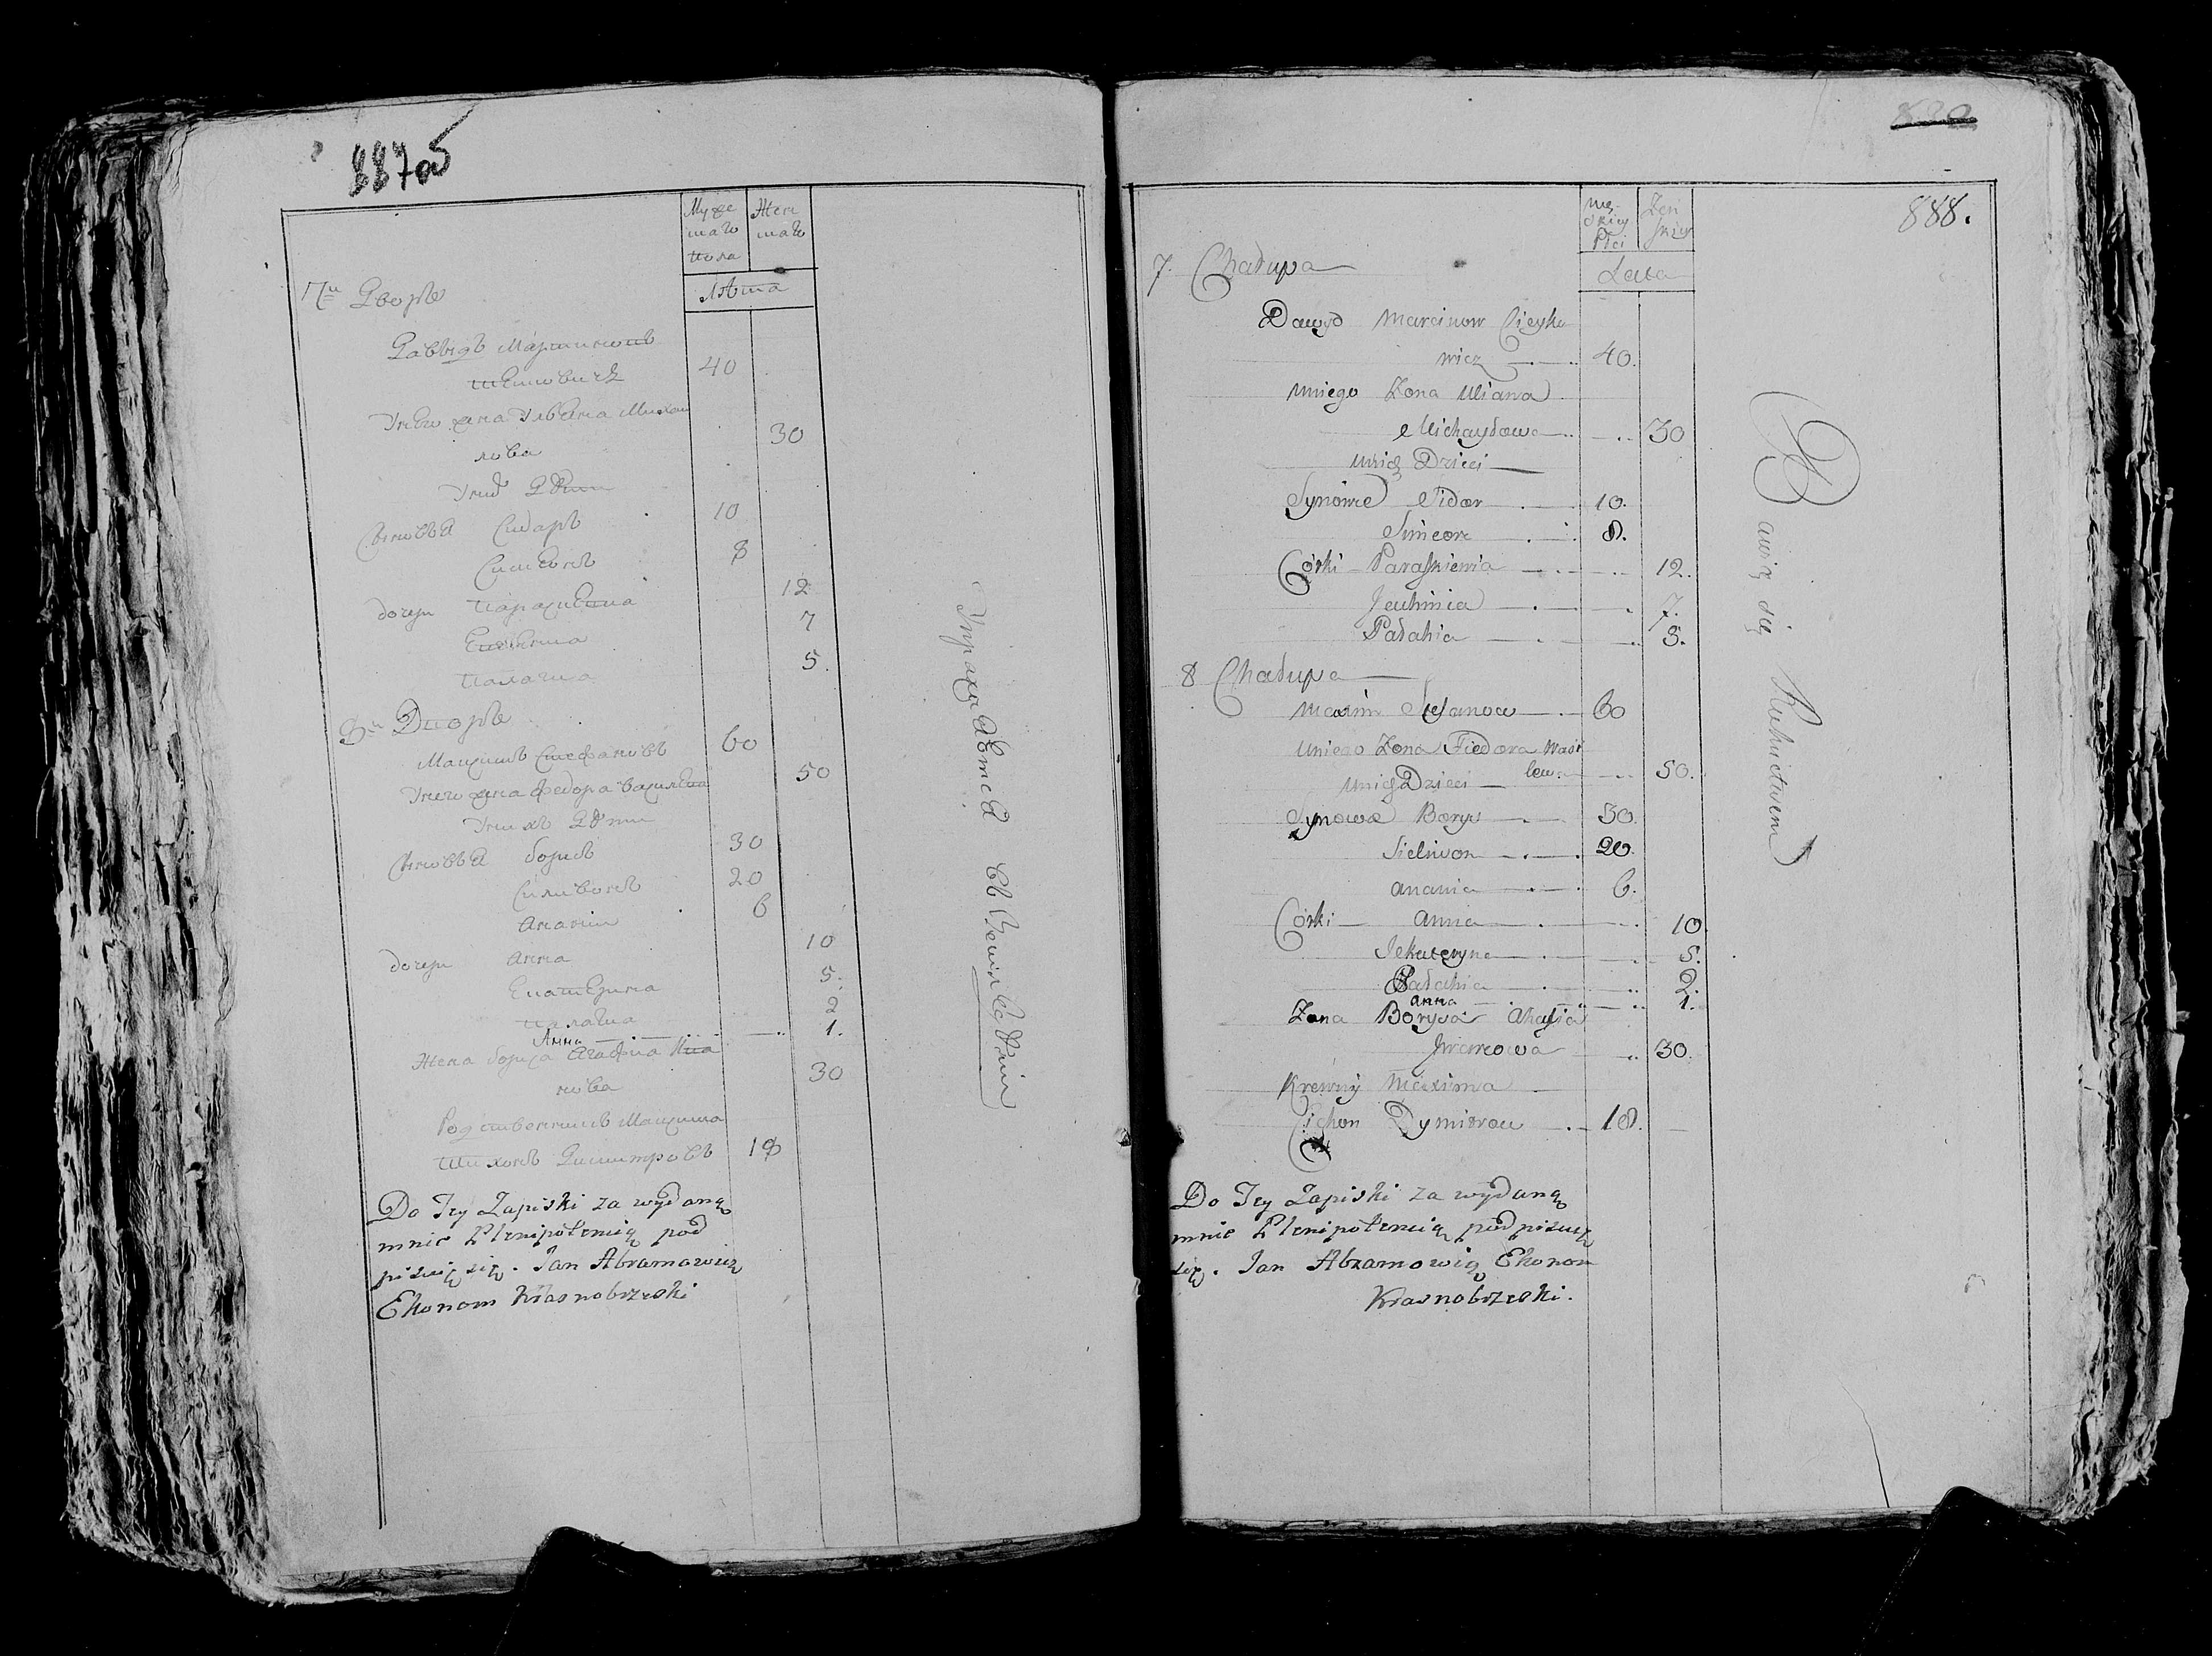 887об
Муже
Жен
скаго
скаго
пола
Лѣта
7й Дворъ
Даввидъ Мартиновъ
40
У него жена Ульяна Михаи
30
лова
У них Дѣти
Сыновья Сидоръ 10
Симеонъ 8
дочери Параскевия 12
7
Палагия 5.
8й Дворъ
Максимъ Стефановъ 60
У него жена Федора Василева 50
У нихъ Дѣти
Сыновья Борисъ 30
Силивонъ 20
Анания 6
дочери Анна 10
Екатерина 5.
Палагия 2
Анна 1.
Жена Бориса Агафия Ива
нова 30
Родственникъ Максима
Тихонъ Димитровъ 18
Упражняется въ Землѣдѣлии
Do Tey Zapiski za wydaną
mnie Plenipotencią pod
pisuię się. Jan Abramowicz
Ekonom Krasnobrzeski
888.
Mę-
Żeń
skiey
skiey
Płci
Lata
7. Chałupa
Dawyd Marcinow Cieyko
wicz 40.
Uniego Żona Uliana
Michayłowa 30
Unich Dzieci
Synowie Sidor 10.
Simeon 8.
Córki Paraskiewia 12.
Jeuhinia 7.
Pałahia 5.
8 Chałupa
Maxim Stefanow 60
Uniego Żona Fiedora Wasi
lew. 50.
Unich Dzieci
Synowie Borys 30.
Sieliwon 20.
Anania 6.
Córki Anna 10
Jekateryna 5.
Pałahia 2.
Anna 1.
Żona Borysa Ahafia
Iwanowa 30.
Krewny Maxima
Cichon Dymitrow 18.
Bawią się Rolnictwem
Do Tey Zapiski za wydaną
mnie Plenipotencią podpisuię
się. Jan Abramowicz Ekonom
Krasnobrzeski.